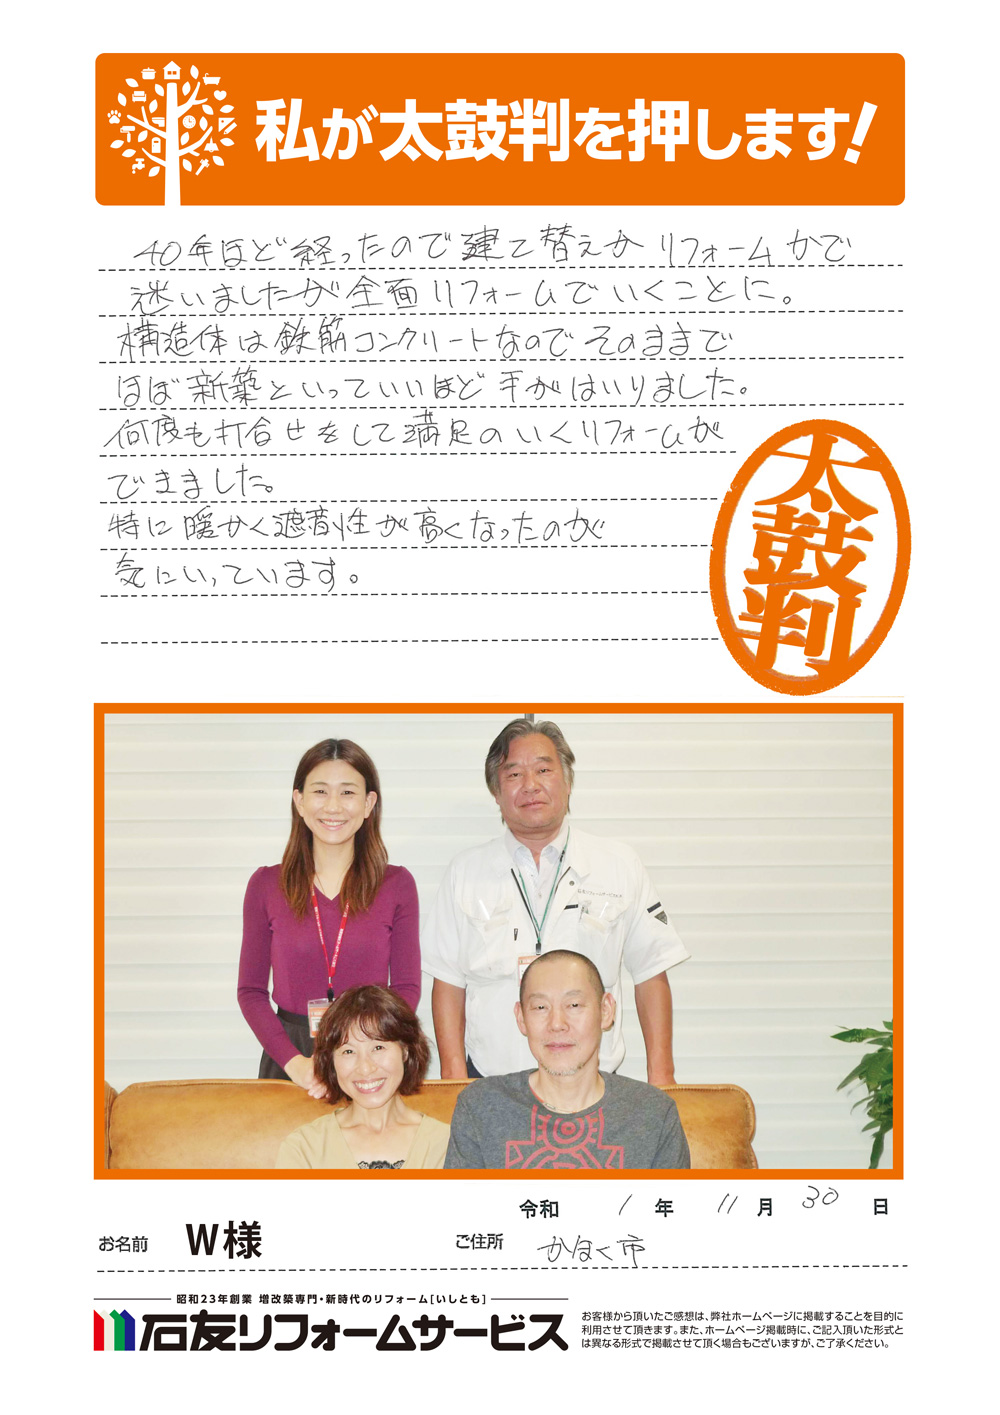 私が太鼓判を押します!
40年ほど経ったので建て替えか リフォームかで
迷いましたが全面リフォームでいくことに。
構造体は鉄筋コンクリートなのでそのままで
ほぼ新築といっていいほど手がはいりました。
何度も打合せをして満足のいくリフォームが
できました。
特に暖かく遮音性が高くなったのが
気にいっています。
太鼓判
令和 1 年 11 月 30 日
お名前 W様 ご住所 かほく市
昭和23年創業 増改築専門・新時代のリフォーム[いしとも]
石友リフォームサービス
お客様から頂いたご感想は、弊社ホームページに掲載することを目的に
利用させて頂きます。また、ホームページ掲載時に、ご記入頂いた形式と
は異なる形式で掲載させて頂く場合もございますが、ご了承ください。